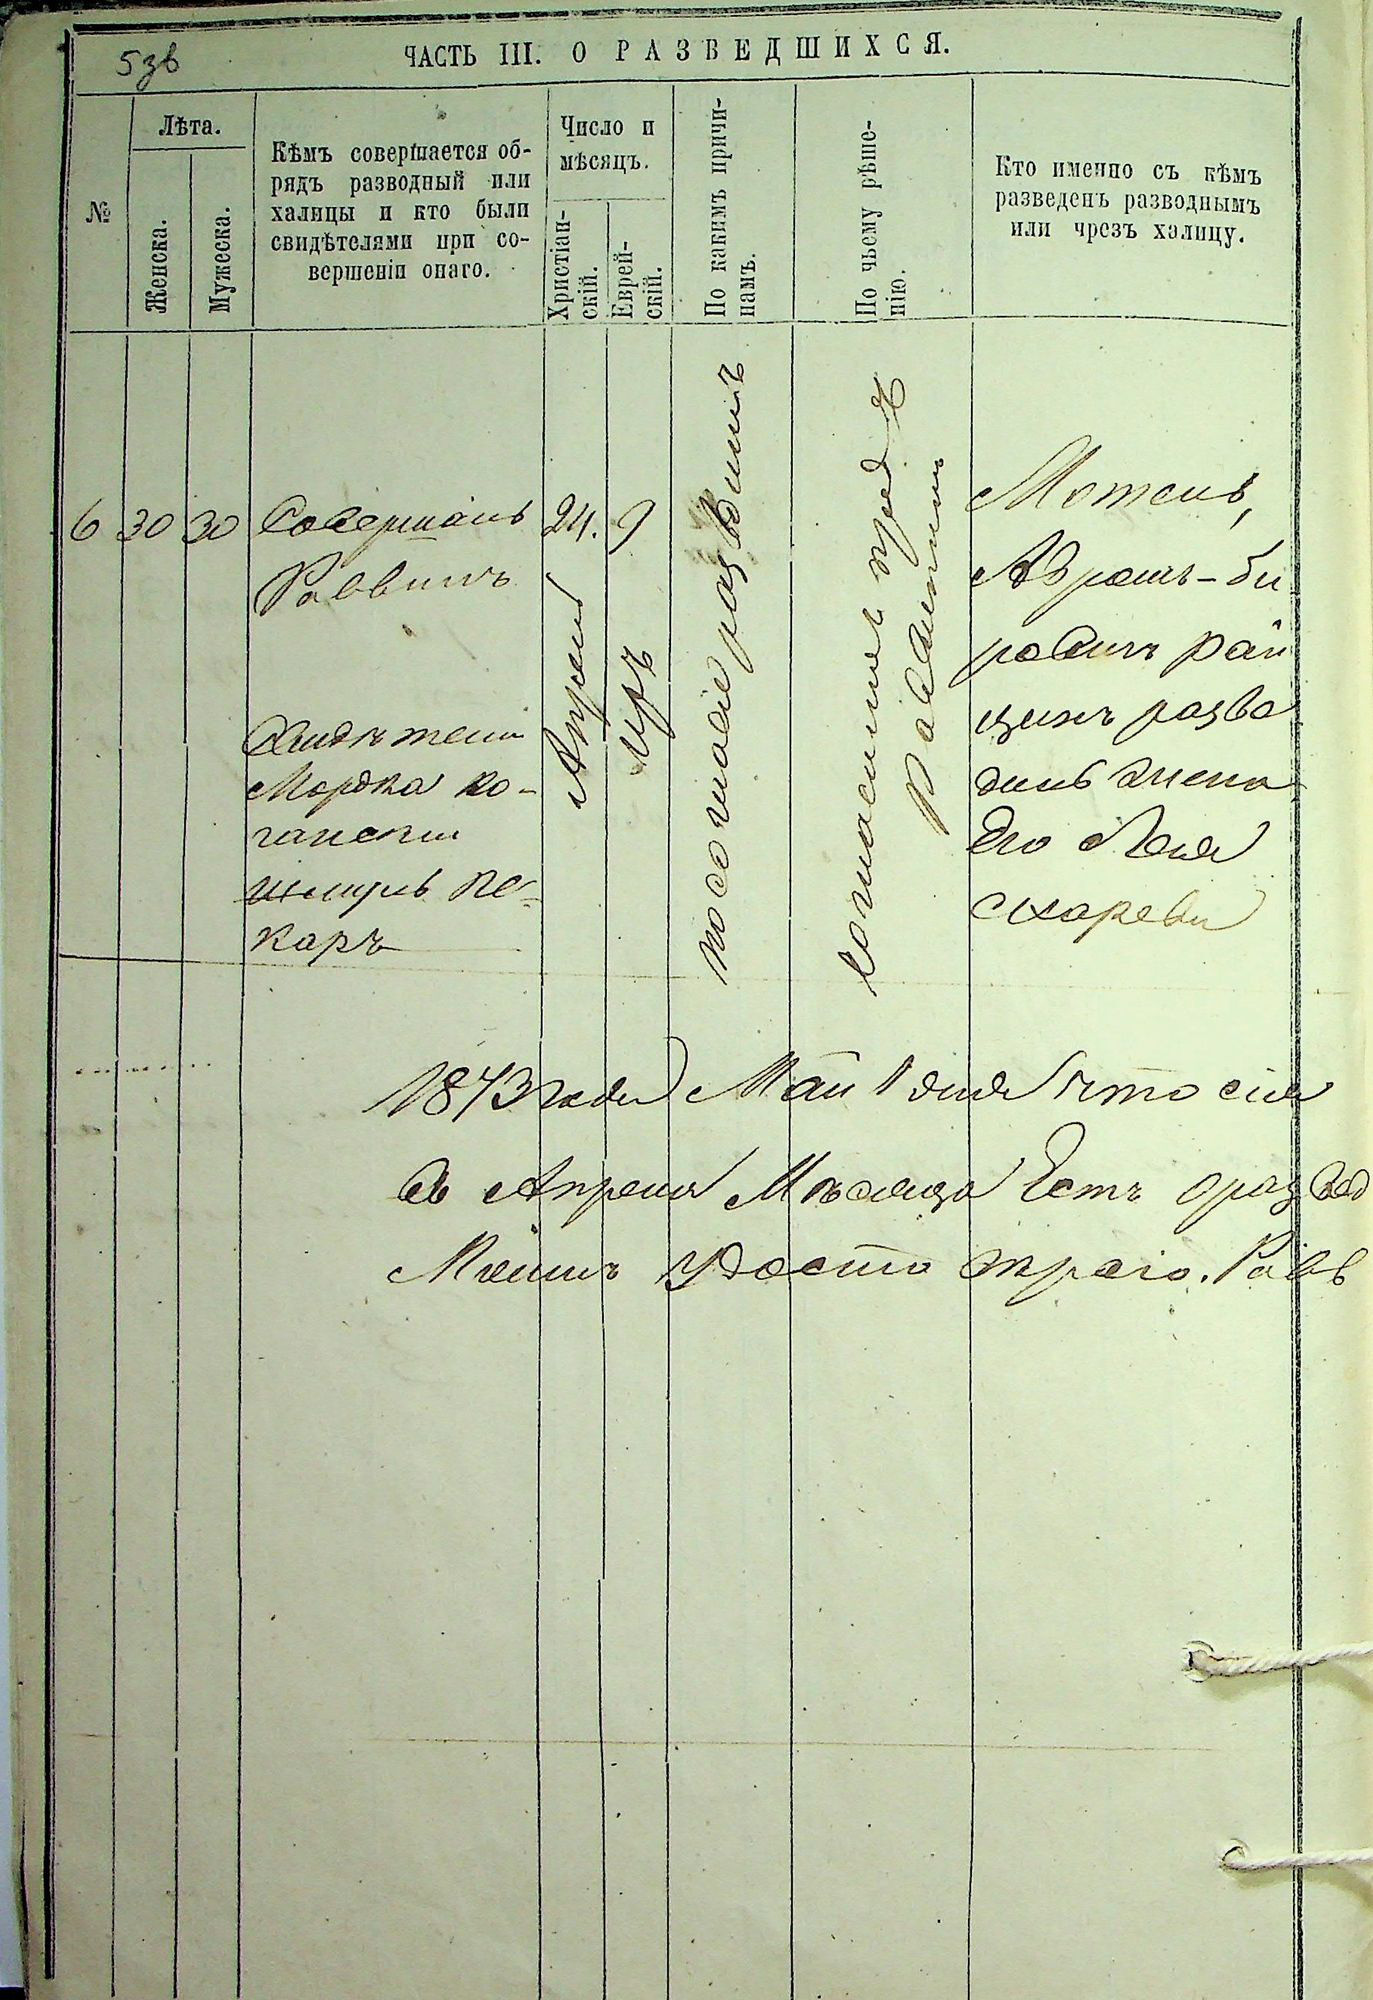 5зв
ЧАСТЬ III. О РАЗВЕДШИХСЯ.
№
Лѣта.
Женска.
Мужеска.
Кѣмъ совершается об-
рядъ разводный или
халицы и кто были
свидѣтелями при со-
вершеніи онаго.
Число и
мѣсяцъ.
Христіан-
скій.
Еврей-
скій.
По какимъ причи-
намъ.
По чьему рѣше-
нію.
Кто именно съ кѣмъ
разведенъ разводнымъ
или чрезъ халицу.
6
30
30
Совершалъ
Раввинъ
Свидѣтели
Мордка ко-
гански
шмуль пе-
каръ
24.
Апрель
9
Иръ
по согласіе
согласился пред
Раввином
Мотель,
Аврамъ-би
ровичъ Рай
цинъ разво
дилъ жена
Его Лея
1873 года Май 1 дня что сія
въ Апреля Мѣсяца Есть
Равв